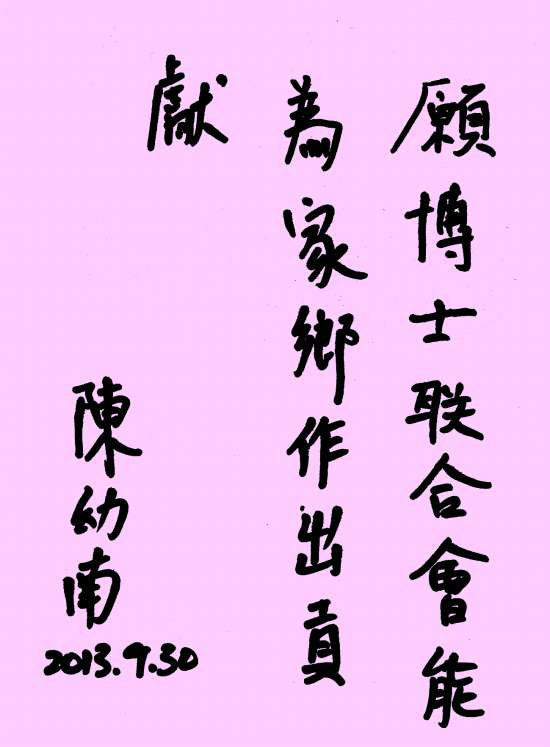 願博士联合會能
為家鄉作出貢
獻
陳幼南
2013.9.30